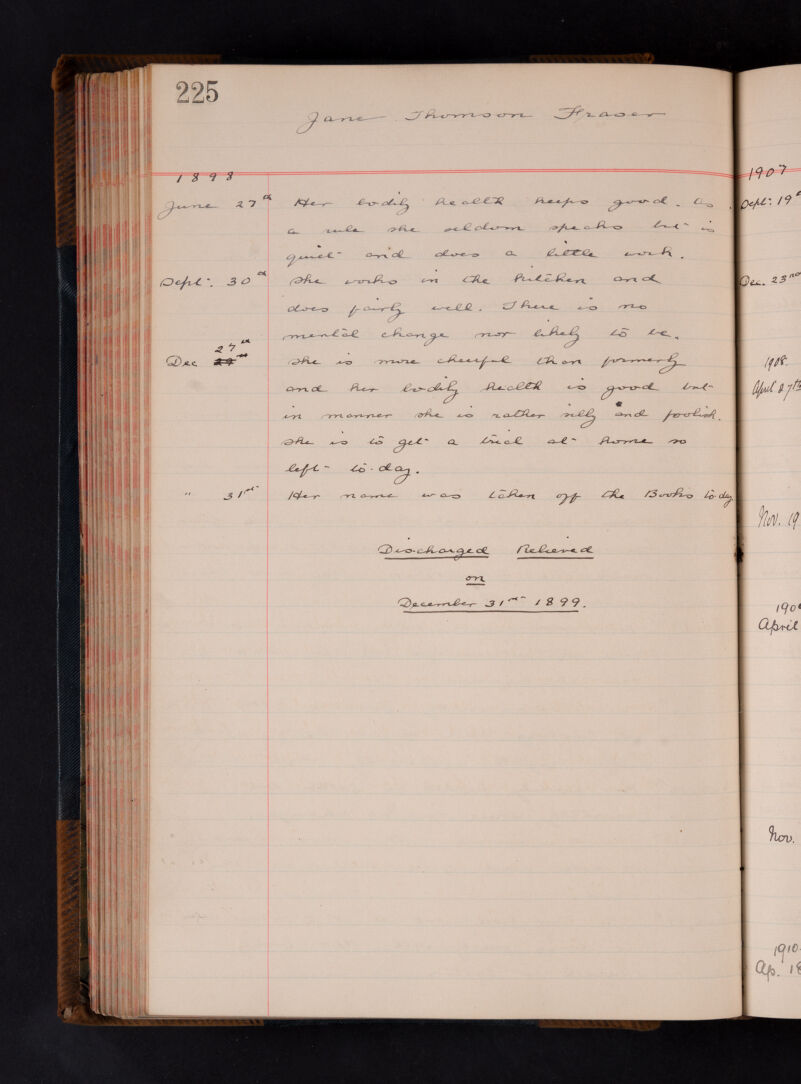 225
Jane Thomson Fraser
1898
June 27th Her bodily health keeps good. As
a rule she seldom speaks but is
quiet and does a little work.
Sept. 30th She works in the kitchen and
does fairly well. There is no
mental change nor likely to be.
27th
Dec She is more cheerful than formerly
and her bodily health is good but
in manner she is rather silly and foolish.
She is to get a trial at home so
left to-day.
" 31st Her name was taken off the Books to-day
Discharged Relieved
on
December 31st 1899.
1907
Sept. 19
Dec. 23rd
1908.
April 27th
Nov. 19
190
April
Nov.
1910
Ap. 18